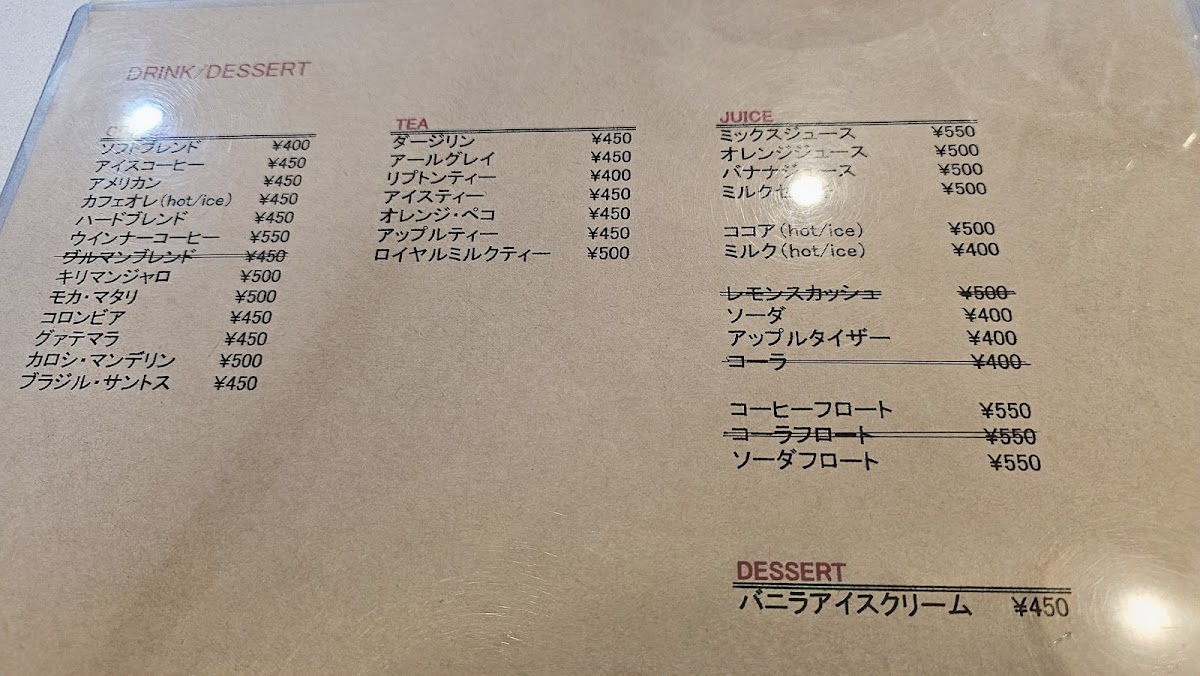 DRINK/DESSERT
ソフトブレンド ¥400
アイスコーヒー ¥450
アメリカン ¥450
カフェオレ(hot/ice) ¥450
ハードブレンド ¥450
ウインナーコーヒー ¥550
ゲルマンブレンド ¥450
キリマンジャロ ¥500
モカ・マタリ ¥500
コロンビア ¥450
グァテマラ ¥450
カロシ・マンデリン ¥500
ブラジル・サントス ¥450
TEA
ダージリン ¥450
アールグレイ ¥450
リプトンティー ¥400
アイスティー ¥450
オレンジ・ペコ ¥450
アップルティー ¥450
ロイヤルミルクティー ¥500
JUICE
ミックスジュース ¥550
オレンジジュース ¥500
バナナジュース ¥500
ミルクセ ¥500
ココア(hot/ice) ¥500
ミルク(hot/ice) ¥400
レモンスカッシュ ¥500
ソーダ ¥400
アップルタイザー ¥400
コーラ ¥400
コーヒーフロート ¥550
コーラフロート ¥550
ソーダフロート ¥550
DESSERT
バニラアイスクリーム ¥450